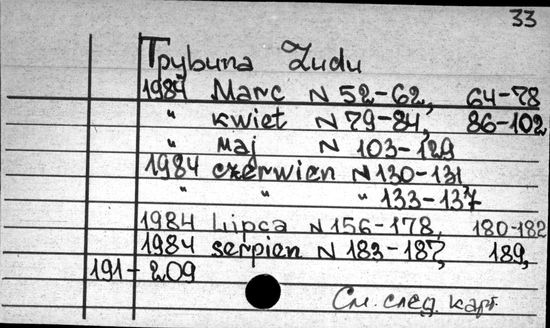 33
Трувипа Ludu
1984 Marc N 52-62, 64-78
" kwiet N 79-84, 86-102
" maj N 103-129
1984 czerwien N 130-131
" " " 133-137
1984 Lipca N 156-178, 180-182
1984 serpien N 183-187, 189,
191-209
См. след. карт.